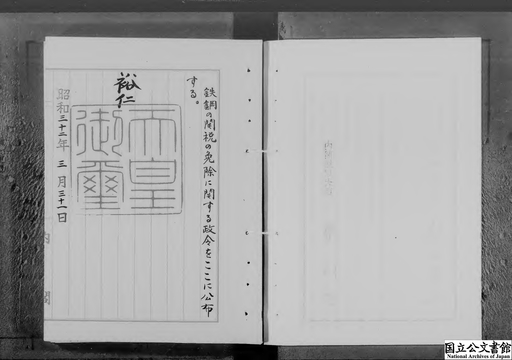 鉄鋼の関税の免除に関する政令をここに公布
する。
裕仁
天皇
御璽
昭和三十三年三月三十一日
内閣
国立公文書館
National Archives of Japan